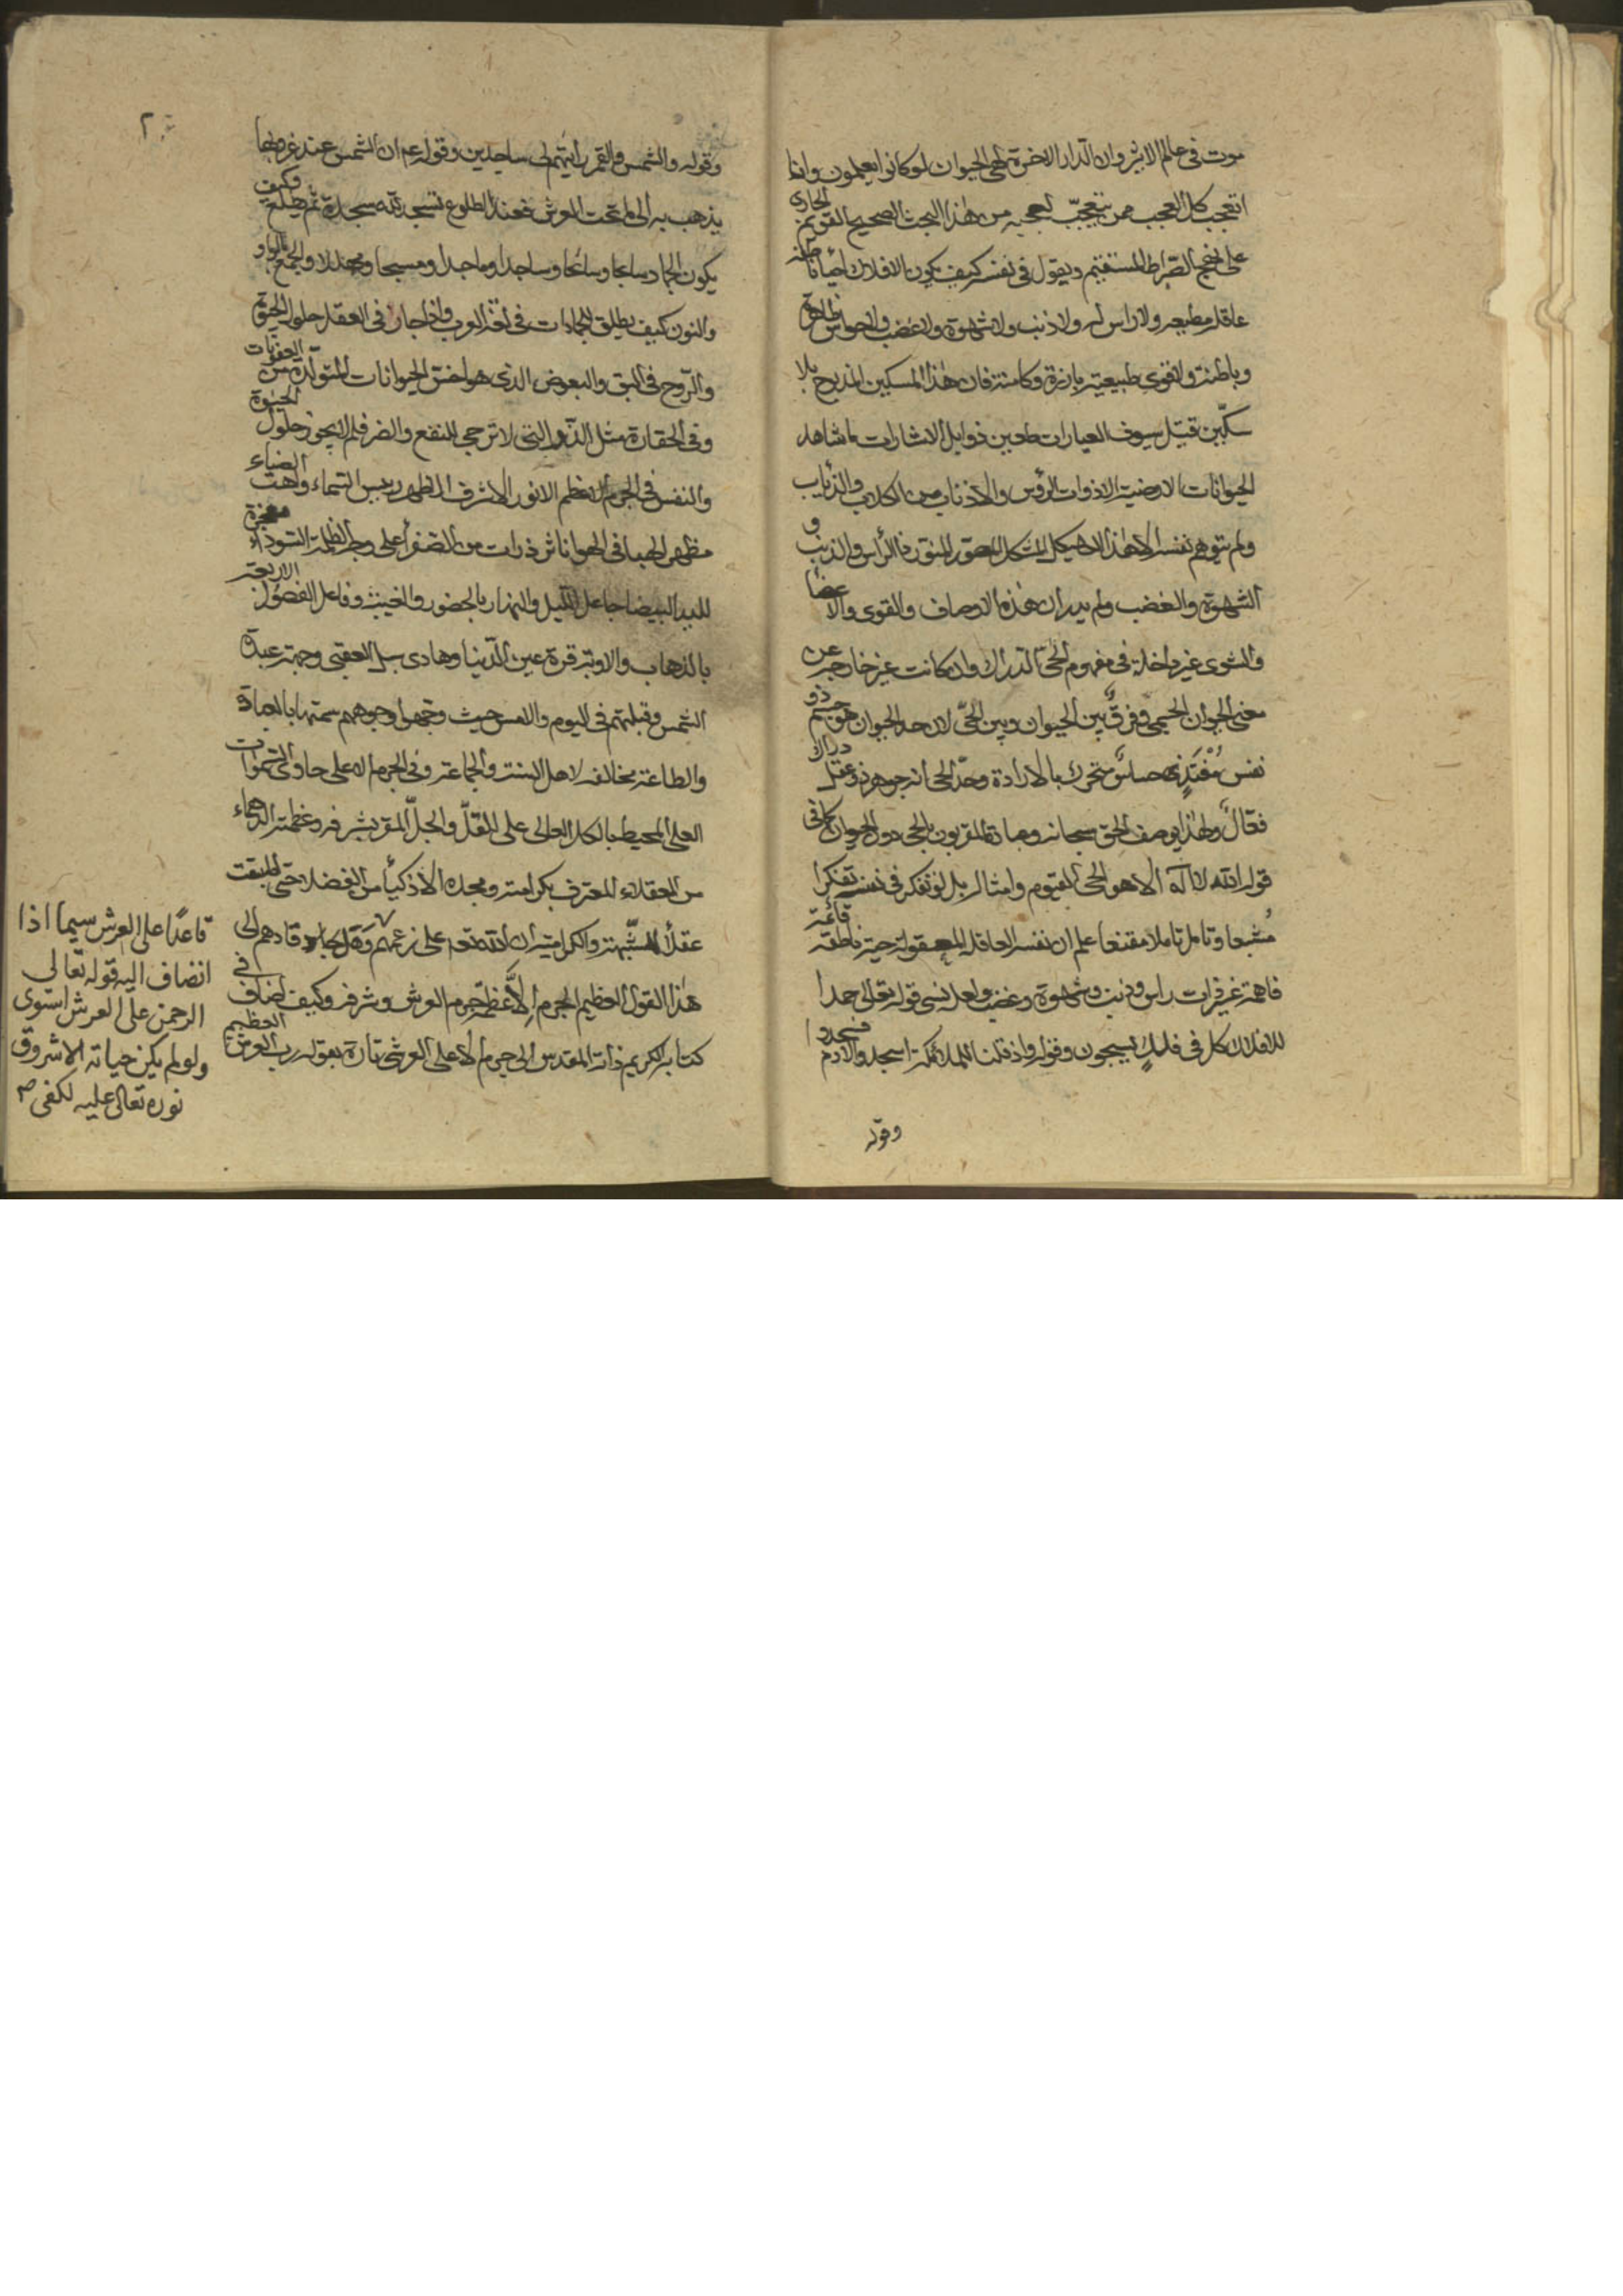 موت فى عالم الاثير وان الدار الاخرة لهى الحيوان لو كانوا يعلمون وانا
اتعجب كل العجب ممن يتعجب لعجبه من هذا البحث الصحيح القويم الجارى
على نهج الصراط المستقيم ويقول فى نفسه كيف يكون الافلاك احياء ناطقة
عاقلة مطيعة ولا راس له ولا ذنب ولا شهوة ولا غضب ولا حواس ظاهرة
وباطنة ولا قوى طبيعية بارزة وكامنة فان هذا المسكين المذبوح بلا
سكين قتيل سيوف العبارات طعين ذوابل الاشارات ما شاهد
الحيوانات الارضية الا ذوات الرؤس والاذناب من الكلاب والذباب
ولم يتوهم نفسه الا هذا الهيكل المشكل المصور المنور ذا الراس والذنب و
الشهوة والغضب ولم يدر ان هذه الاوصاف والقوى والاعضا
والشوى غير داخلة فى مفهوم الحى الدراك وان كانت غير خارجة عن
معنى الحيوان الجسمى وفرق بين الحيوان وبين الحى لان حد الحيوان هو جسم ذو
نفس مغتذى حساس متحرك بالارادة وحد الحى انه جوهر ذو عقل دراك
فعال ولهذا يوصف الحق سبحانه وعباده المقربون بالحى دون الحيوان كما فى
قوله الله لا اله الا هو الحى القيوم وامثاله بل لو تفكر فى نفسه تفكرا
مشبعا وتامل تاملا مقنعا علم ان نفسه العاقلة المعقولة حية ناطقة قائمة
فاهمة غير ذات راس وذنب وشهوة وغضب ولعله نسى قوله تعالى حمدا
للافلاك كل فى فلك يسبحون وقوله واذ قلنا للملائكة اسجدوا لادم فسجدوا
وقوله
٢
وقوله والشمس والقمر رايتهم لى ساجدين وقوله عم ان الشمس عند غروبها
يذهب به الى ما تحت العرش فعند الطلوع تسجد لله سجدة ثم يطلع وكيف
يكون الجماد سابحا وسائحا وساجدا وماجدا ومسبحا ومهللا والجمع بالواو
والنون كيف يطلق للجمادات فى لغة العرب واذا جاز فى العقل حلول الحيوة
والروح فى البق والبعوض الذى هو اخس الحيوانات المتولدة من العفونات
وفى الحقارة مثل الذر التى لا ترجى للنفع والضر فلم لا يجوز حلول الحيوة
والنفس فى الجرم الاعظم الانور الاشرف الاظهر رييس السماء واهب الضياء
مظهر الهبا فى الهوا ناثر ذرات من الصفر اعلى وجه الظلمة السوداء معجزة
لليد البيضا جاعل الليل والنهار بالحضور والغيبة وفاعل الفصول الاربعة
بالذهاب والاوبة قرة عين الدنيا وهادى سبل العقبى وجهة عبدة
الشمس وقبلتهم فى اليوم والامس حيث وجهوا وجوههم سمتها بالعبادة
والطاعة مخالفة لاهل السنة والجماعة وفى الجرم الاعلى حاوى السموات
العلى المحيط بالكل العالى على القل والجل المقر بشرفه وعظمته الدهماء
من العقلاء المعترف بكرامته ومجده الاذكيا من الفضلا حتى
عقلا المشبهة والكرامية ان الله تعه على زعمهم وقادهم الى
هذا القول العظيم الجرم الاعظم جرم العرش وشرفه وكيف اضاف فى
كتابه الكريم ذاته المقدس الى جرم الاعلى العرشى تارة بقوله رب العرش العظيم
قاعدا على العرش سيما اذا
انضاف اليه قوله تعالى
الرحمن على العرش استوى
ولو لم يكن حياته الا شروق
نوره تعالى عليه لكفى صح